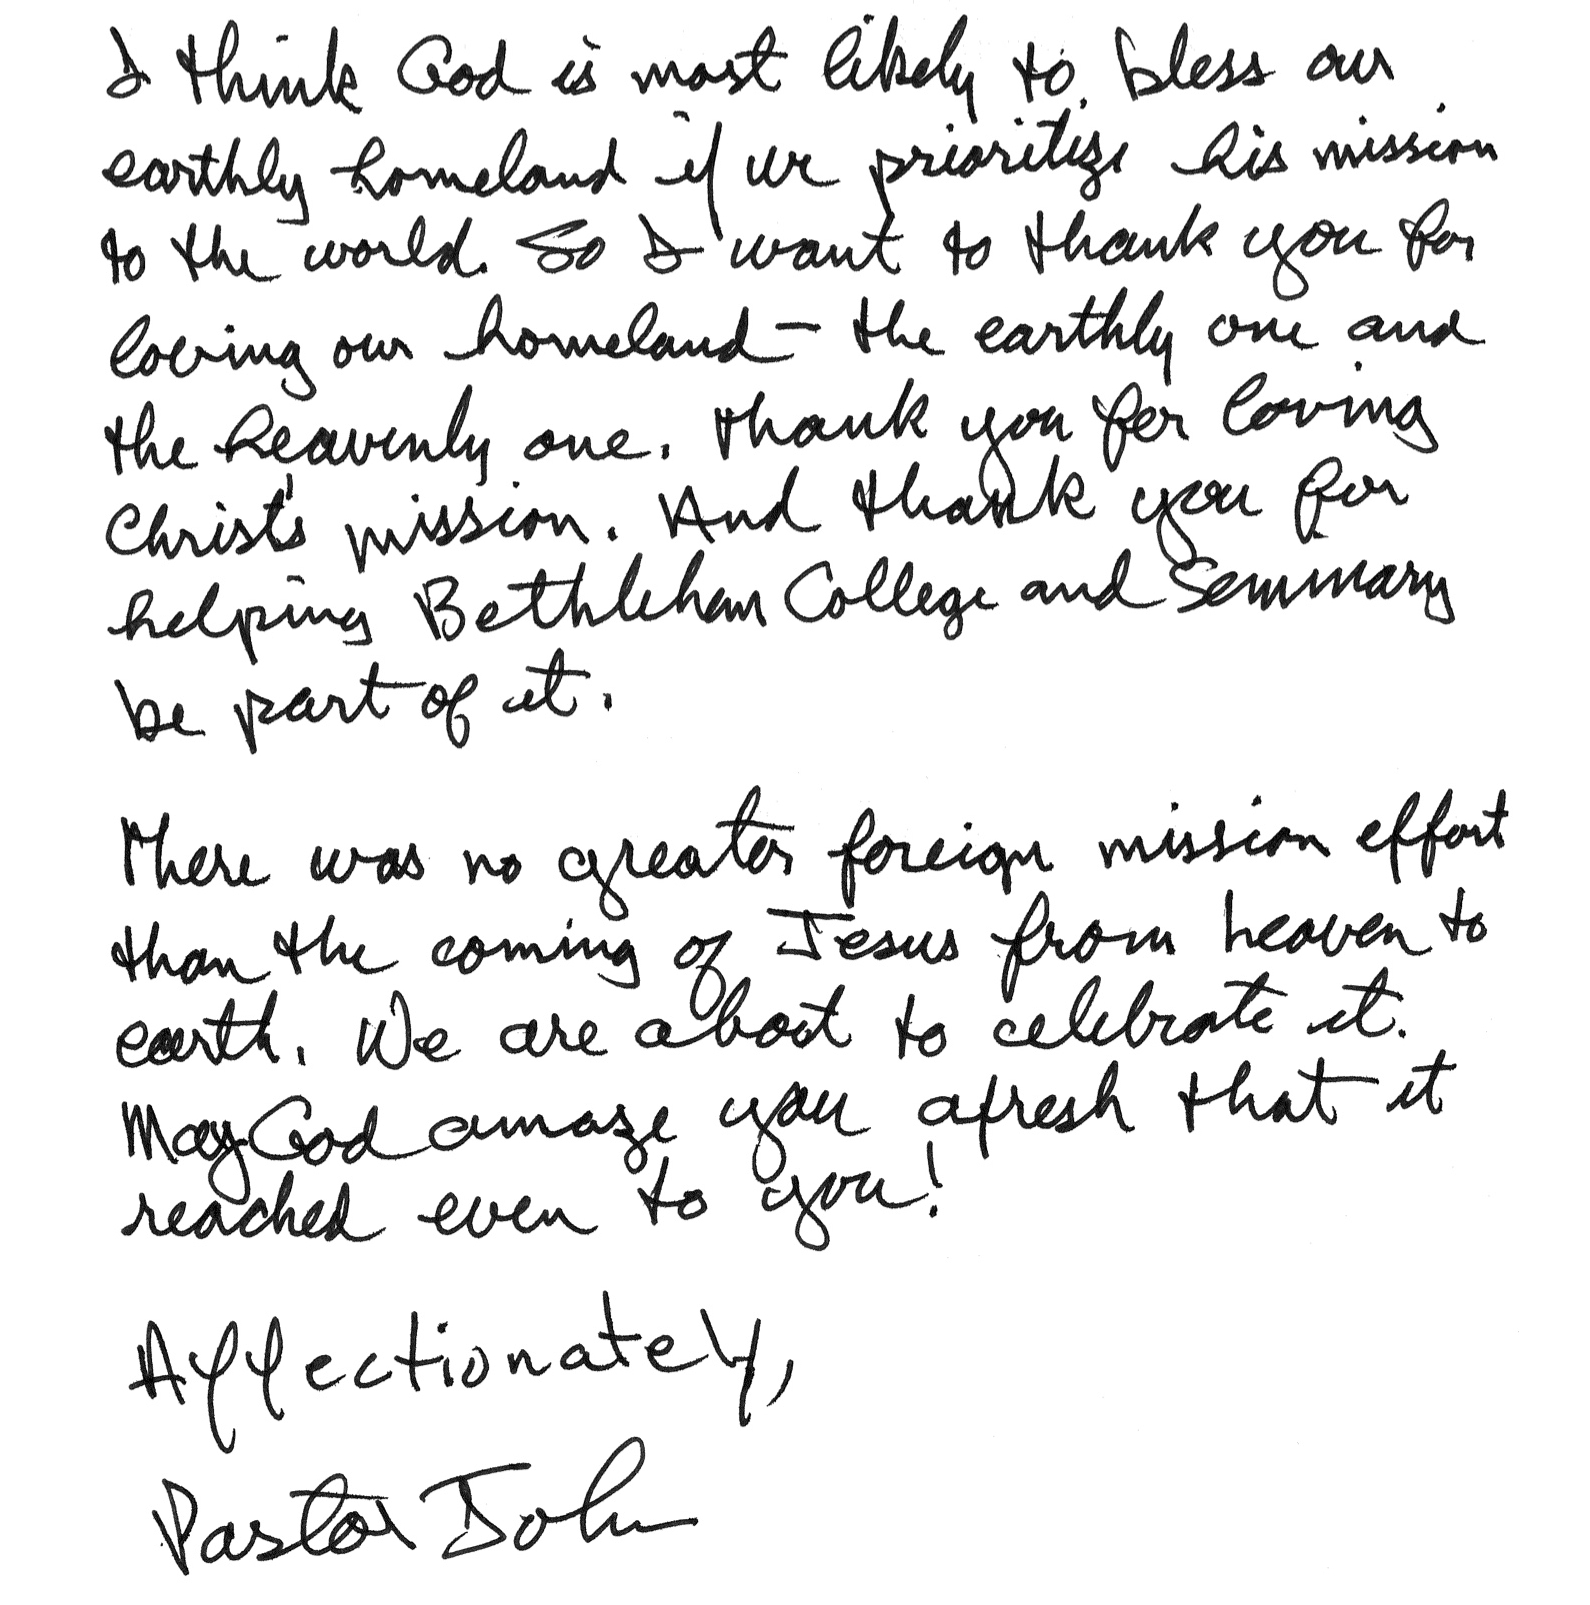 I think God is most likely to bless our
earthly homeland if we prioritize his mission
to the world. So I want to thank you for
loving our homeland – the earthly one and
the heavenly one. Thank you for loving
Christ's mission. And thank you for
helping Bethlehem College and Seminary
be part of it.
There was no greater foreign mission effort
than the coming of Jesus from heaven to
earth. We are about to celebrate it.
May God amaze you afresh that it
reached even to you!
Affectionately,
Pastor John